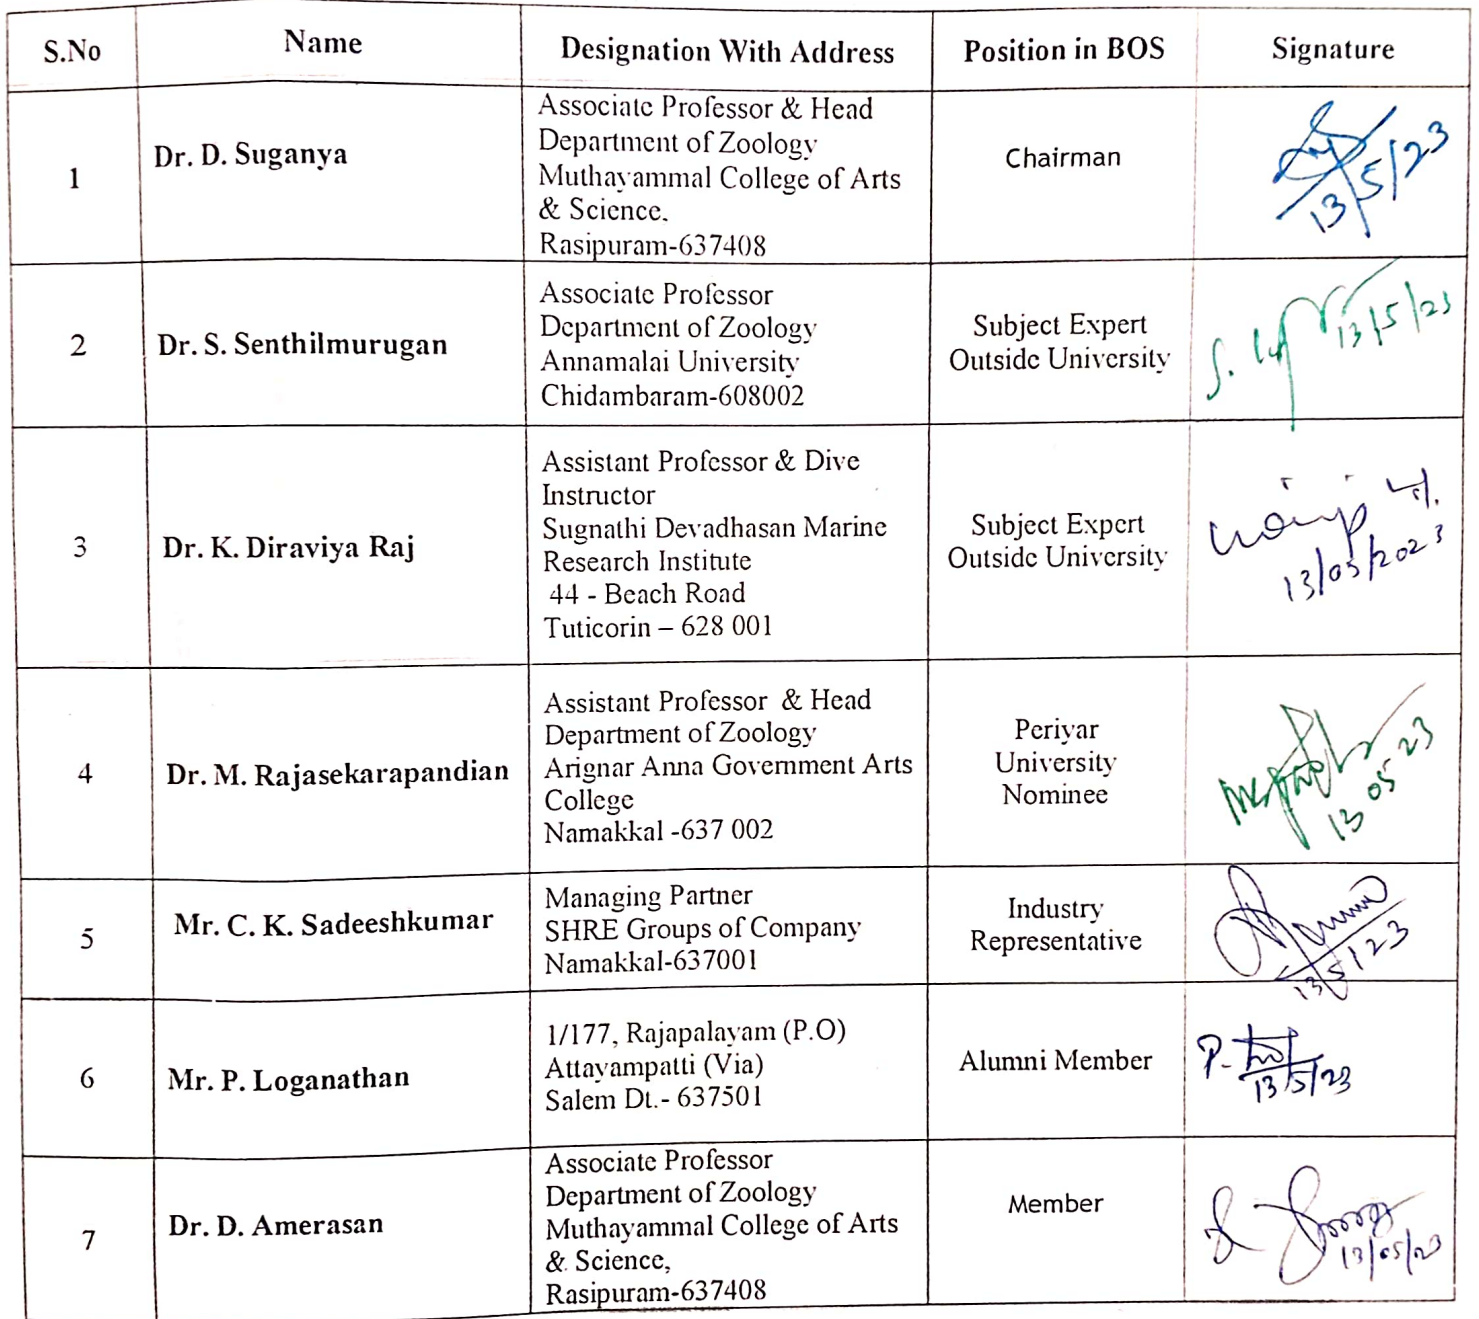 S.No Name Designation With Address Position in BOS Signature
1
Dr. D. Suganya
Associate Professor & Head
Department of Zoology
Muthayammal College of Arts
& Science.
Rasipuram-637408
Chairman
13/5/23
2
Dr. S. Senthilmurugan
Associate Professor
Department of Zoology
Annamalai University
Chidambaram-608002
Subject Expert
Outside University
S.
13/5/23
3
Dr. K. Diraviya Raj
Assistant Professor & Dive
Instructor
Sugnathi Devadhasan Marine
Research Institute
44 - Beach Road
Tuticorin – 628 001
Subject Expert
Outside University
13/05/2023
4
Dr. M. Rajasekarapandian
Assistant Professor & Head
Department of Zoology
Arignar Anna Government Arts
College
Namakkal -637 002
Periyar
University
Nominee
13 05 23
5
Mr. C. K. Sadeeshkumar
Managing Partner
SHRE Groups of Company
Namakkal-637001
Industry
Representative
13/5/23
6
Mr. P. Loganathan
1/177, Rajapalayam (P.O)
Attayampatti (Via)
Salem Dt.- 637501
Alumni Member
P.
13/5/23
7
Dr. D. Amerasan
Associate Professor
Department of Zoology
Muthayammal College of Arts
& Science,
Rasipuram-637408
Member
13/05/23